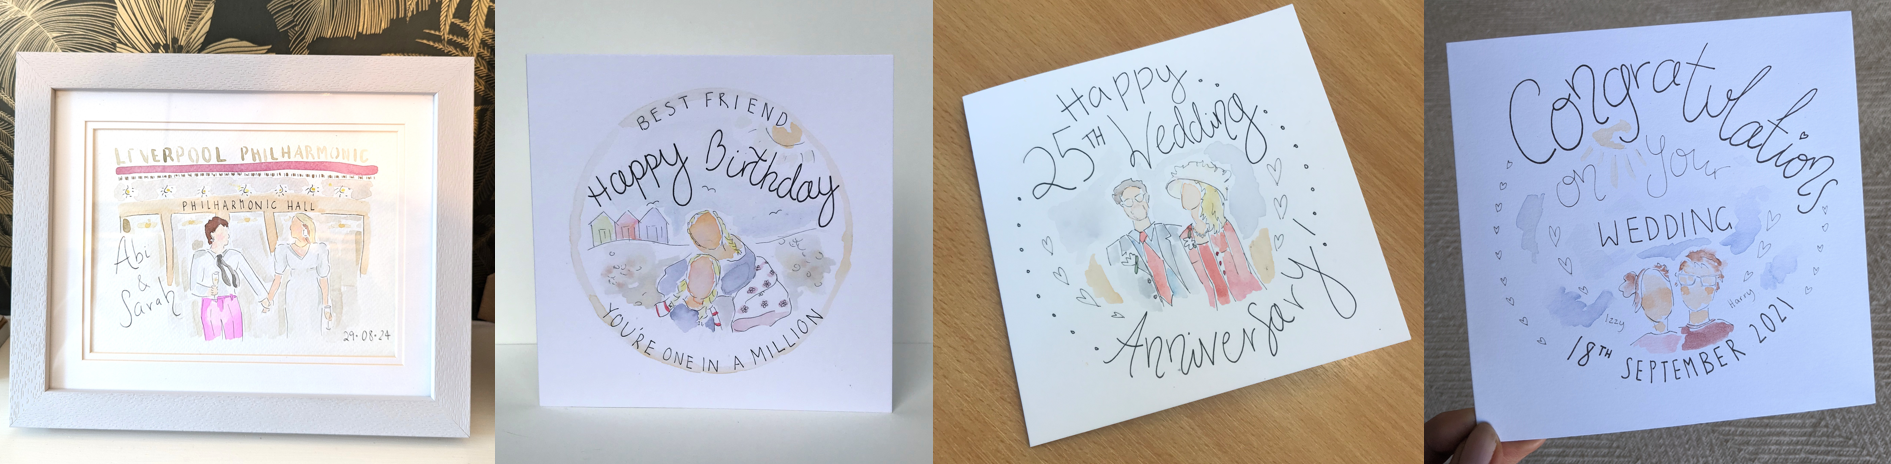 LIVERPOOL PHILHARMONIC
PHILHARMONIC HALL
Abi
&
Sarah
29·08·24
BEST FRIEND
Happy Birthday
YOU'RE ONE IN A MILLION
Happy
25TH Wedding
Anniversary!
Congratulations
on Your
WEDDING
Harry
Izzy
18TH SEPTEMBER 2021